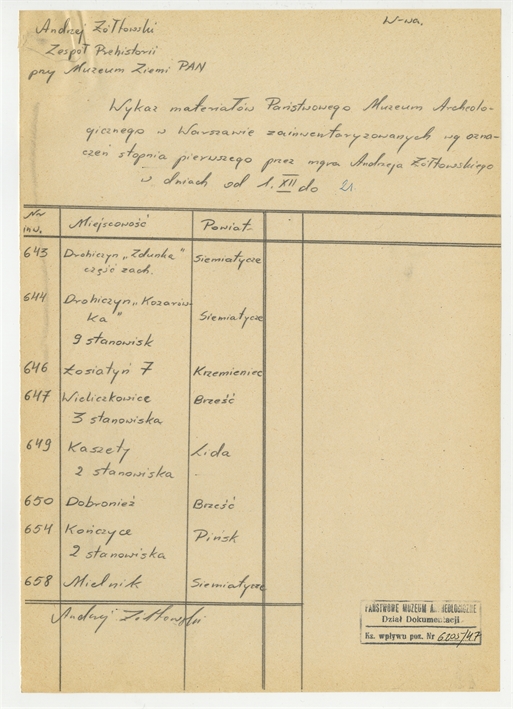 Andrzej Żółtowski
W-wa.
Zespół Prehistorii
przy Muzeum Ziemi PAN
Wykaz materiałów Państwowego Muzeum Archeolo-
gicznego w Warszawie zainwentaryzowanych wg ozna-
czeń stopnia pierwszego przez mgra Andrzeja Żółtowskiego
w dniach od 1. XII do 21.
Nr inw. Miejscowość Powiat
643 Drohiczyn „Zdunka" Siemiatycze
część zach.
644 Drohiczyn „Kozarów-
ka" Siemiatycze
9 stanowisk
646 Łosiatyń 7 Krzemieniec
647 Wieliczkowice Brześć
3 stanowiska
649 Kaszety Lida
2 stanowiska
650 Dobronież Brześć
654 Kończyce Pińsk
2 stanowiska
658 Mielnik Siemiatycze
Andrzej Żółtowski
PAŃSTWOWE MUZEUM ARCHEOLOGICZNE
Dział Dokumentacji
Ks. wpływu poz. Nr